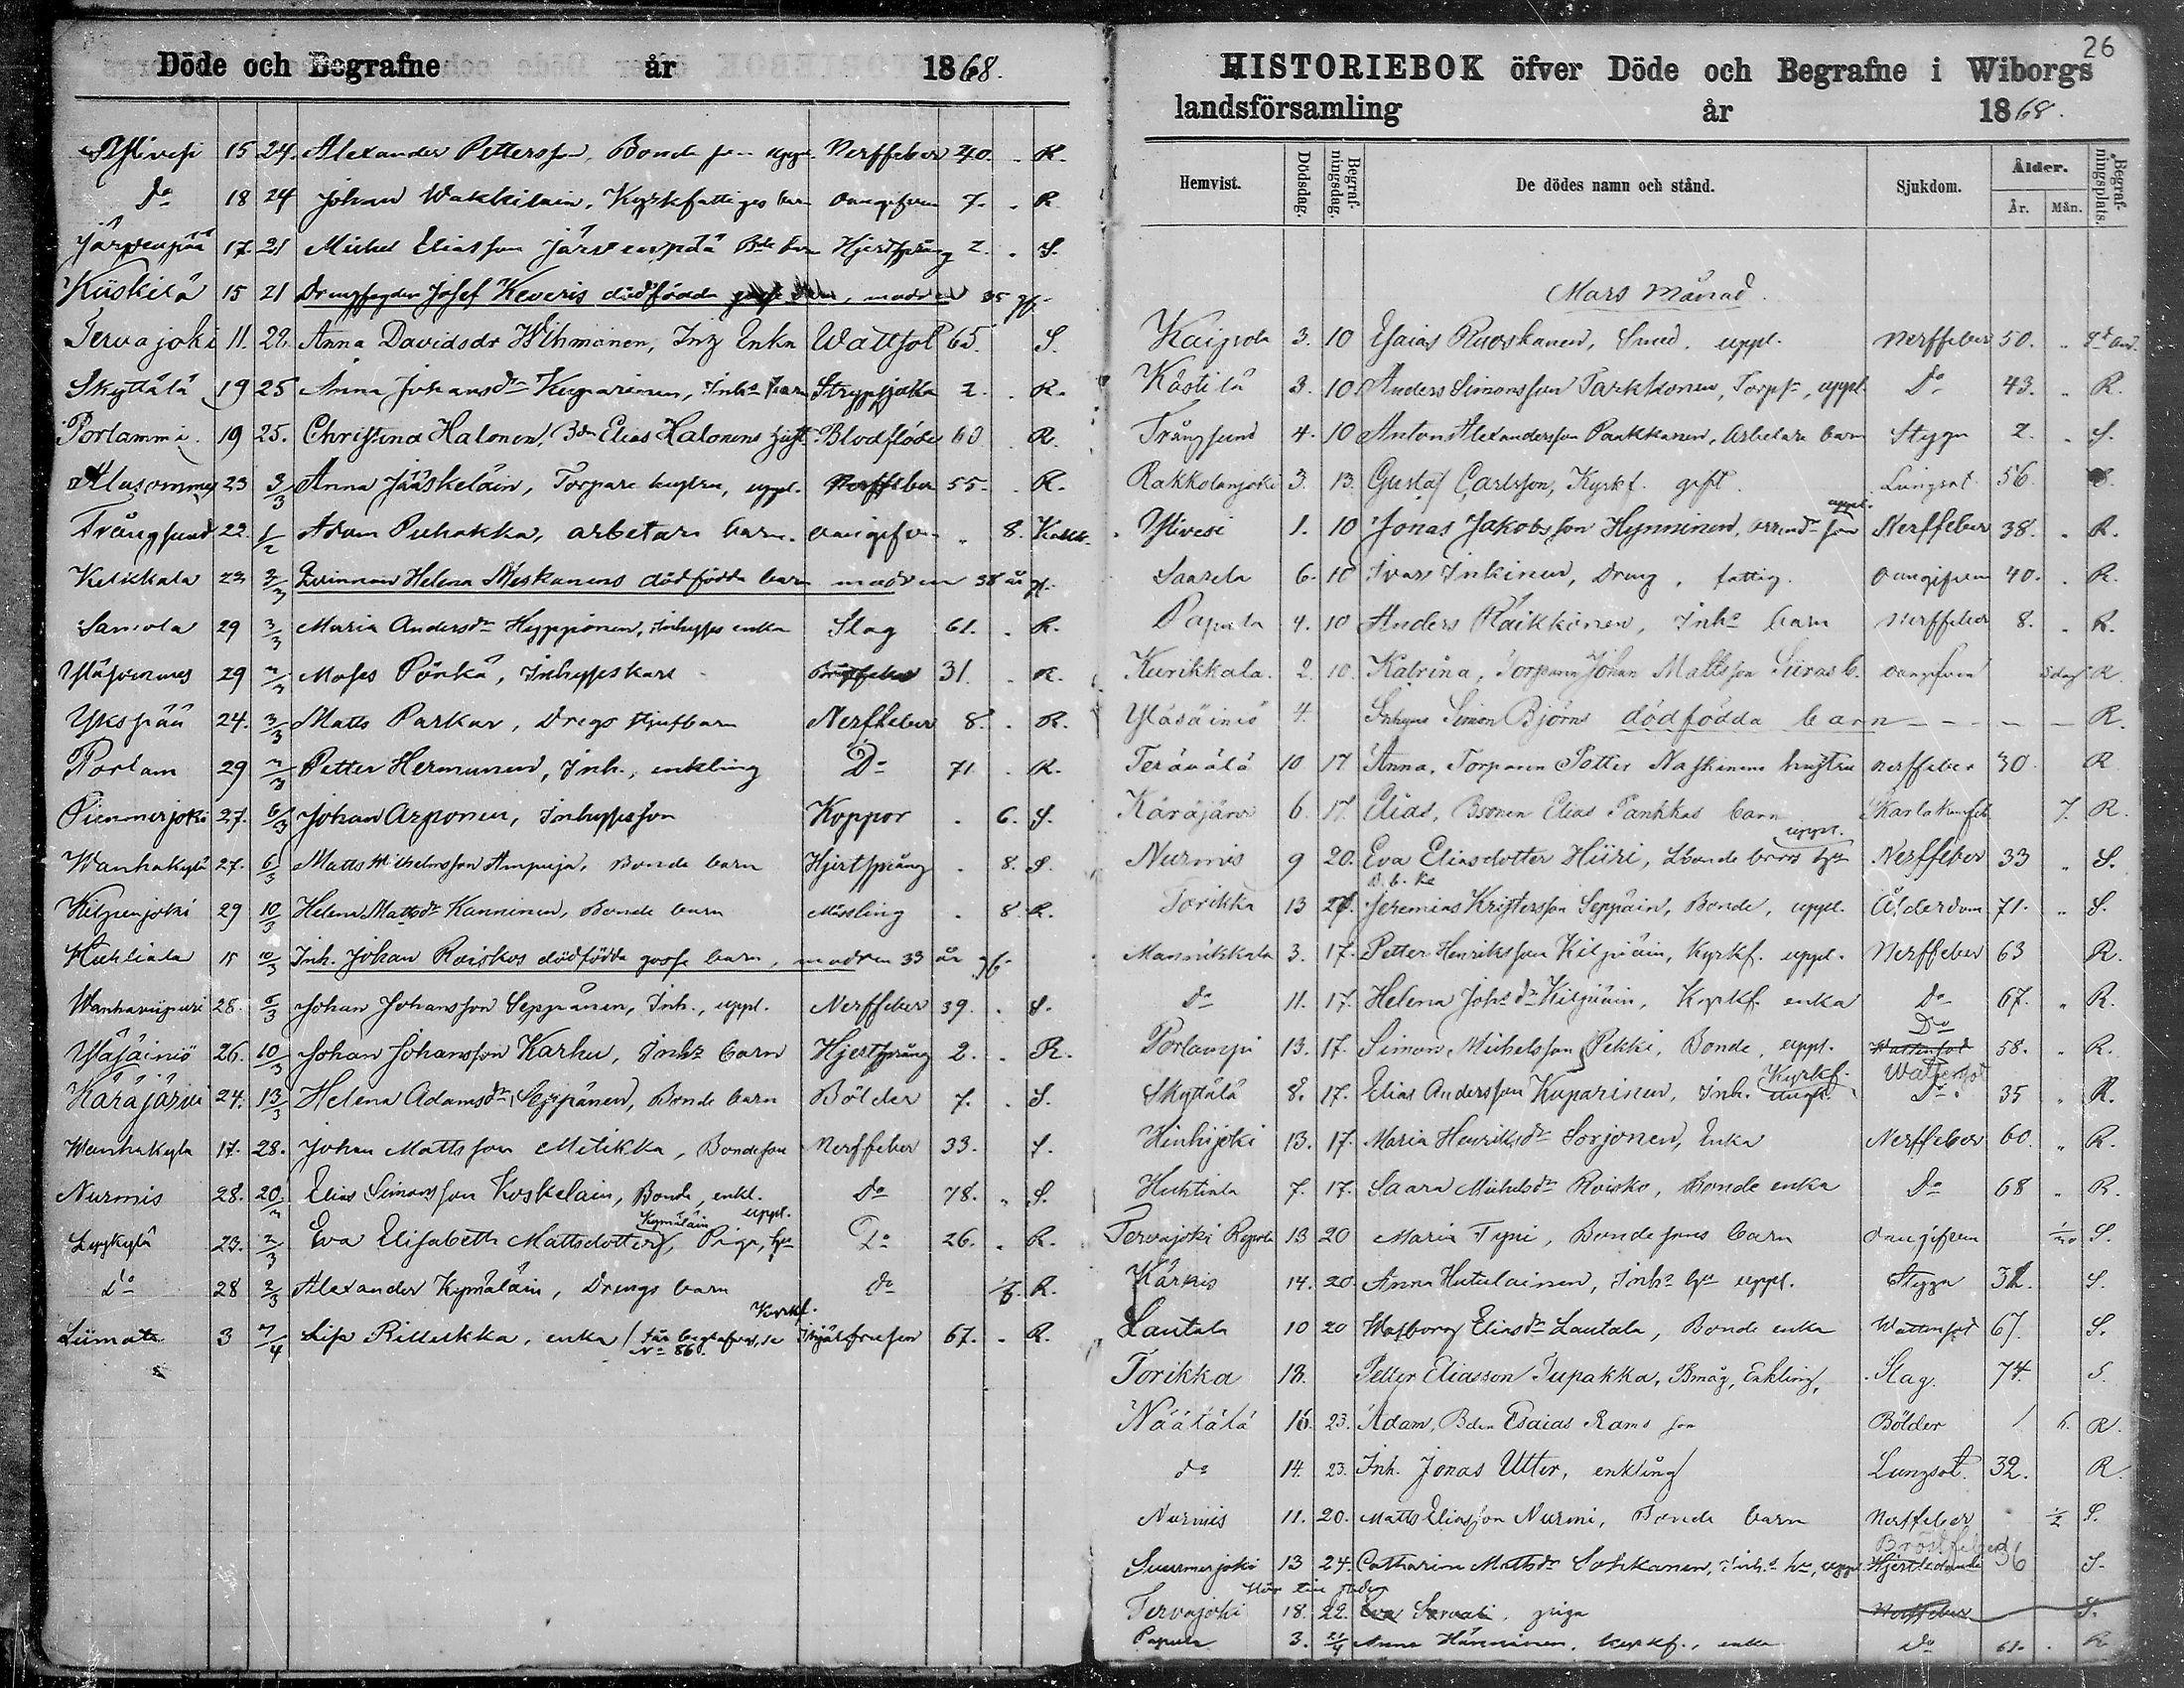 Döde och Begrafne år 1868.
Ylivesi 15 24. Alexander Pettersson, Bonde son uppl. Nerffeber 40. . R.
Do 18 24 Johan Wakkilain, Kyrkfattiges barn oangifven 7. . R
Järvenpää 17. 21 Michel Eliasson Järvenpää Bde barn Hjertsprång 2. . S.
Kuskilä 15 21 Drengfogden Josef Keveris dödfödda barn, modren 35 gf.
Tervajoki 11. 22. Anna Davidsdr Wihmanen, Inh Enka Wattsot 65. S.
Skyttälä 19 25 Anna Johansdr Kuparinen, Inhs barn Strypsjuka 2. . R.
Portammi. 19 25. Christina Halonen, Bdn Elias Halonens hust. Blodflöde 60 R.
Alasommes 23 3/3 Anna Jääskeläin, Torpare hustru, uppl. Nerffeber 55. . R.
Trångsund 22. 1/2 Adam Puhakka, arbetare barn. oangifven „ 8. Kakk.
Kelkkala 23 3/3 Qvinnan Helena Meskanens dödfödda barn modren 38 år gf.
Samola 29 3/3 Maria Andersdr Hyppönen, Inhyses enka Slag 61. . R.
Yläsommes 29 Moses Pönkä, Inhyseskarl 31. . R.
Ykspää 24. 3/3 Matts Parkar, Drengs styfbarn Nerffeber 8. . R.
Portam 29 Petter Hermunen, Inh., enkling Do 71. . R.
27. 6/3 Johan Arponen, Inhyses son Koppor . 6. S.
Wanhakylä 27. 6/3 Matts Wilhelmsson Ampuja, Bonde barn Hjertsprång . 8. S.
Kilpenjoki 29 10/3 Helena Mattsdr Kanninen, Bonde barn Mässling . 8 R.
Huhtiala 15 10/3 Inh. Johan Roiskos dödfödda gosse barn, modren 33 år gf.
Wanhaviipuri 28. 6/3 Johan Johansson Seppänen, Inh., uppl. Nerffeber 39. . S.
Yläsäiniö 26. 10/3 Johan Johansson Karhu, Inhs barn Hjertsprång 2. . R.
Käräjärvi 24. 13/3 Helena Adamsdr Seppänen, Bonde barn Bölder 7. . S.
Wanhakylä 17. 28. Johan Mattsson Mitikka, Bondeson Nerffeber 33. S.
Nurmis 28. 20/3 Elias Simonsson Koskelain, Bonde, enkl. Do 78. „ S.
Lyykylä 23. 2/3 Eva Elisabeth Mattsdotter Kymäläin, Piga, uppl. Do 26. . R.
Do 28 2/3 Alexander Kymäläin, Drengs barn Do R.
Liimata 3 7/4 Lisa Rillukka, enka Kyrkf. No 86. Ihjälfrusen 67. . R.
26
HISTORIEBOK öfver Döde och Begrafne i Wiborgs
landsförsamling år 1868.
Hemvist. Dödsdag. Begrafningsdag. De dödes namn och stånd. Sjukdom. Ålder. År. Mån. Begrafningsplats.
Mars månad.
Kaipola 3. 10 Esaias Ruoskanen, Smed, uppl. Nerffeber 50. „
Köstilä 3. 10. Anders Simonsson Tarkkonen, Torpr, uppl. Do 43. „ R.
Trångsund 4. 10 Anton Alexandersson Pankkanen, Arbetare barn Stygn 2. „ S.
Rakkolanjoki 3. 13. Gustaf Carlsson, Kyrkf. gift. Lungsot 56.
Ylivesi 1. 10 Jonas Jakobsson Hynninen, arrendr son uppl. Nerffeber 38. „ R.
Saarela 6. 10 Ivar Inkinen, Dreng, fattig. oangifven 40. . R.
Papula 4. 10 Anders Räikkönen, Inhs barn Nerffeber 8. . R.
Kurikkala. 2. 10. Katrina, Torparen Johan Mattsson Siiras b. oangifven 8 dag R.
Yläsäiniö 4. Inhyses Simon Björns dödfödda barn - - - - R.
Terävälä 10 17 Anna, Torparen Petter Naskinens hustru nerffeber 30 R
Käräjärvi 6. 17. Elias, Bonen Elias Pankkas barn Skarlakansfeb 7. R.
Nurmis 9 20. Eva Eliasdotter Hiiri, uppl. Nerffeber 33 „ S.
Torikka 13 Jeremias Kristersson Seppäin, Bonde, uppl. Ålderdom 71. „ S.
Mannikkala 3. 17. Petter Henriksson Kilpiäin, Kyrkf. uppl. Nerffeber 63 R.
Do 11. 17. Helena Johsdr Kilpiäin, Kyrkf. enka Do 67. „ R.
Portampi 13. 17. Simon Michelsson Pekki, Bonde, uppl. Wattensot Do 58. „ R.
Skyttälä 8. 17. Elias Andersson Kuparinen, Inh. Kyrkf. Wattensot Do. 35 „ R.
Hinhijoki 13. 17. Maria Henriksdr Sorjonen, Enka Nerffeber 60. „ R.
Huhtiala 7. 17. Saara Michelsdr Roisko, Bonde enka Do 68 „ R.
Tervajoki Repola 13 20 Maria Typi, Bondesons barn oangifven S.
Kärkis 14. 20. Anna Hutulainen, Inhs uppl. Stygn S.
Lautala 10 20 Walborg Eliasdr Lautala, Bonde enka Wattensot 67. S.
Torikka 18. Petter Eliasson Tupakka, Bmåg, Enkling, Slag. 74. S.
Näätälä 16. 23. Adam, Bdn Esaias Rams son Bölder 1 6. R.
do 14. 23. Inh. Jonas Utter, enkling Lungsot. 32. R.
Nurmis 11. 20. Matts Eliasson Nurmi, Bonde barn Nerffeber 1/2 S.
Suurmerjoki 13 24. Catharina Mattsdr Sohkanen, Inhs uppl. Bröstfeber 36 S.
Tervajoki 18. 22. Eva Sarvati, piga Nerffeber S.
Papula 3. Anna Hänninen, kyrkf., enka Do 61. . R.